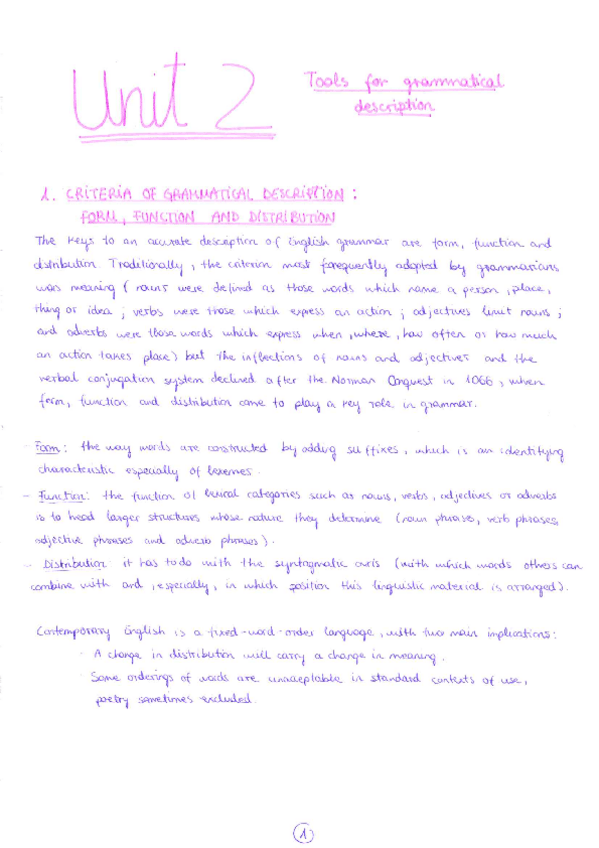 Unit 2
Tools for grammatical
description
1. CRITERIA OF GRAMMATICAL DESCRIPTION :
FORM, FUNCTION AND DISTRIBUTION
The keys to an accurate description of English grammar are form, function and
distribution. Traditionally, the criterion most frequently adopted by grammarians
was meaning (nouns were defined as those words which name a person, place,
thing or idea; verbs were those which express an action; adjectives limit nouns;
and adverbs were those words which express when, where, how often or how much
an action takes place) but the inflections of nouns and adjectives and the
verbal conjugation system declined after the Norman Conquest in 1066, when
form, function and distribution came to play a key role in grammar.
- Form: the way words are constructed by adding suffixes, which is an identifying
characteristic especially of lexemes.
- Function: the function of lexical categories such as nouns, verbs, adjectives or adverbs
is to head larger structures whose nature they determine (noun phrases, verb phrases,
adjective phrases and adverb phrases).
- Distribution: it has to do with the syntagmatic axis (with which words others can
combine with and, especially, in which position this linguistic material is arranged).
Contemporary English is a fixed-word-order language, with two main implications:
· A change in distribution will carry a change in meaning.
· Some orderings of words are unacceptable in standard contexts of use,
poetry sometimes excluded.
1